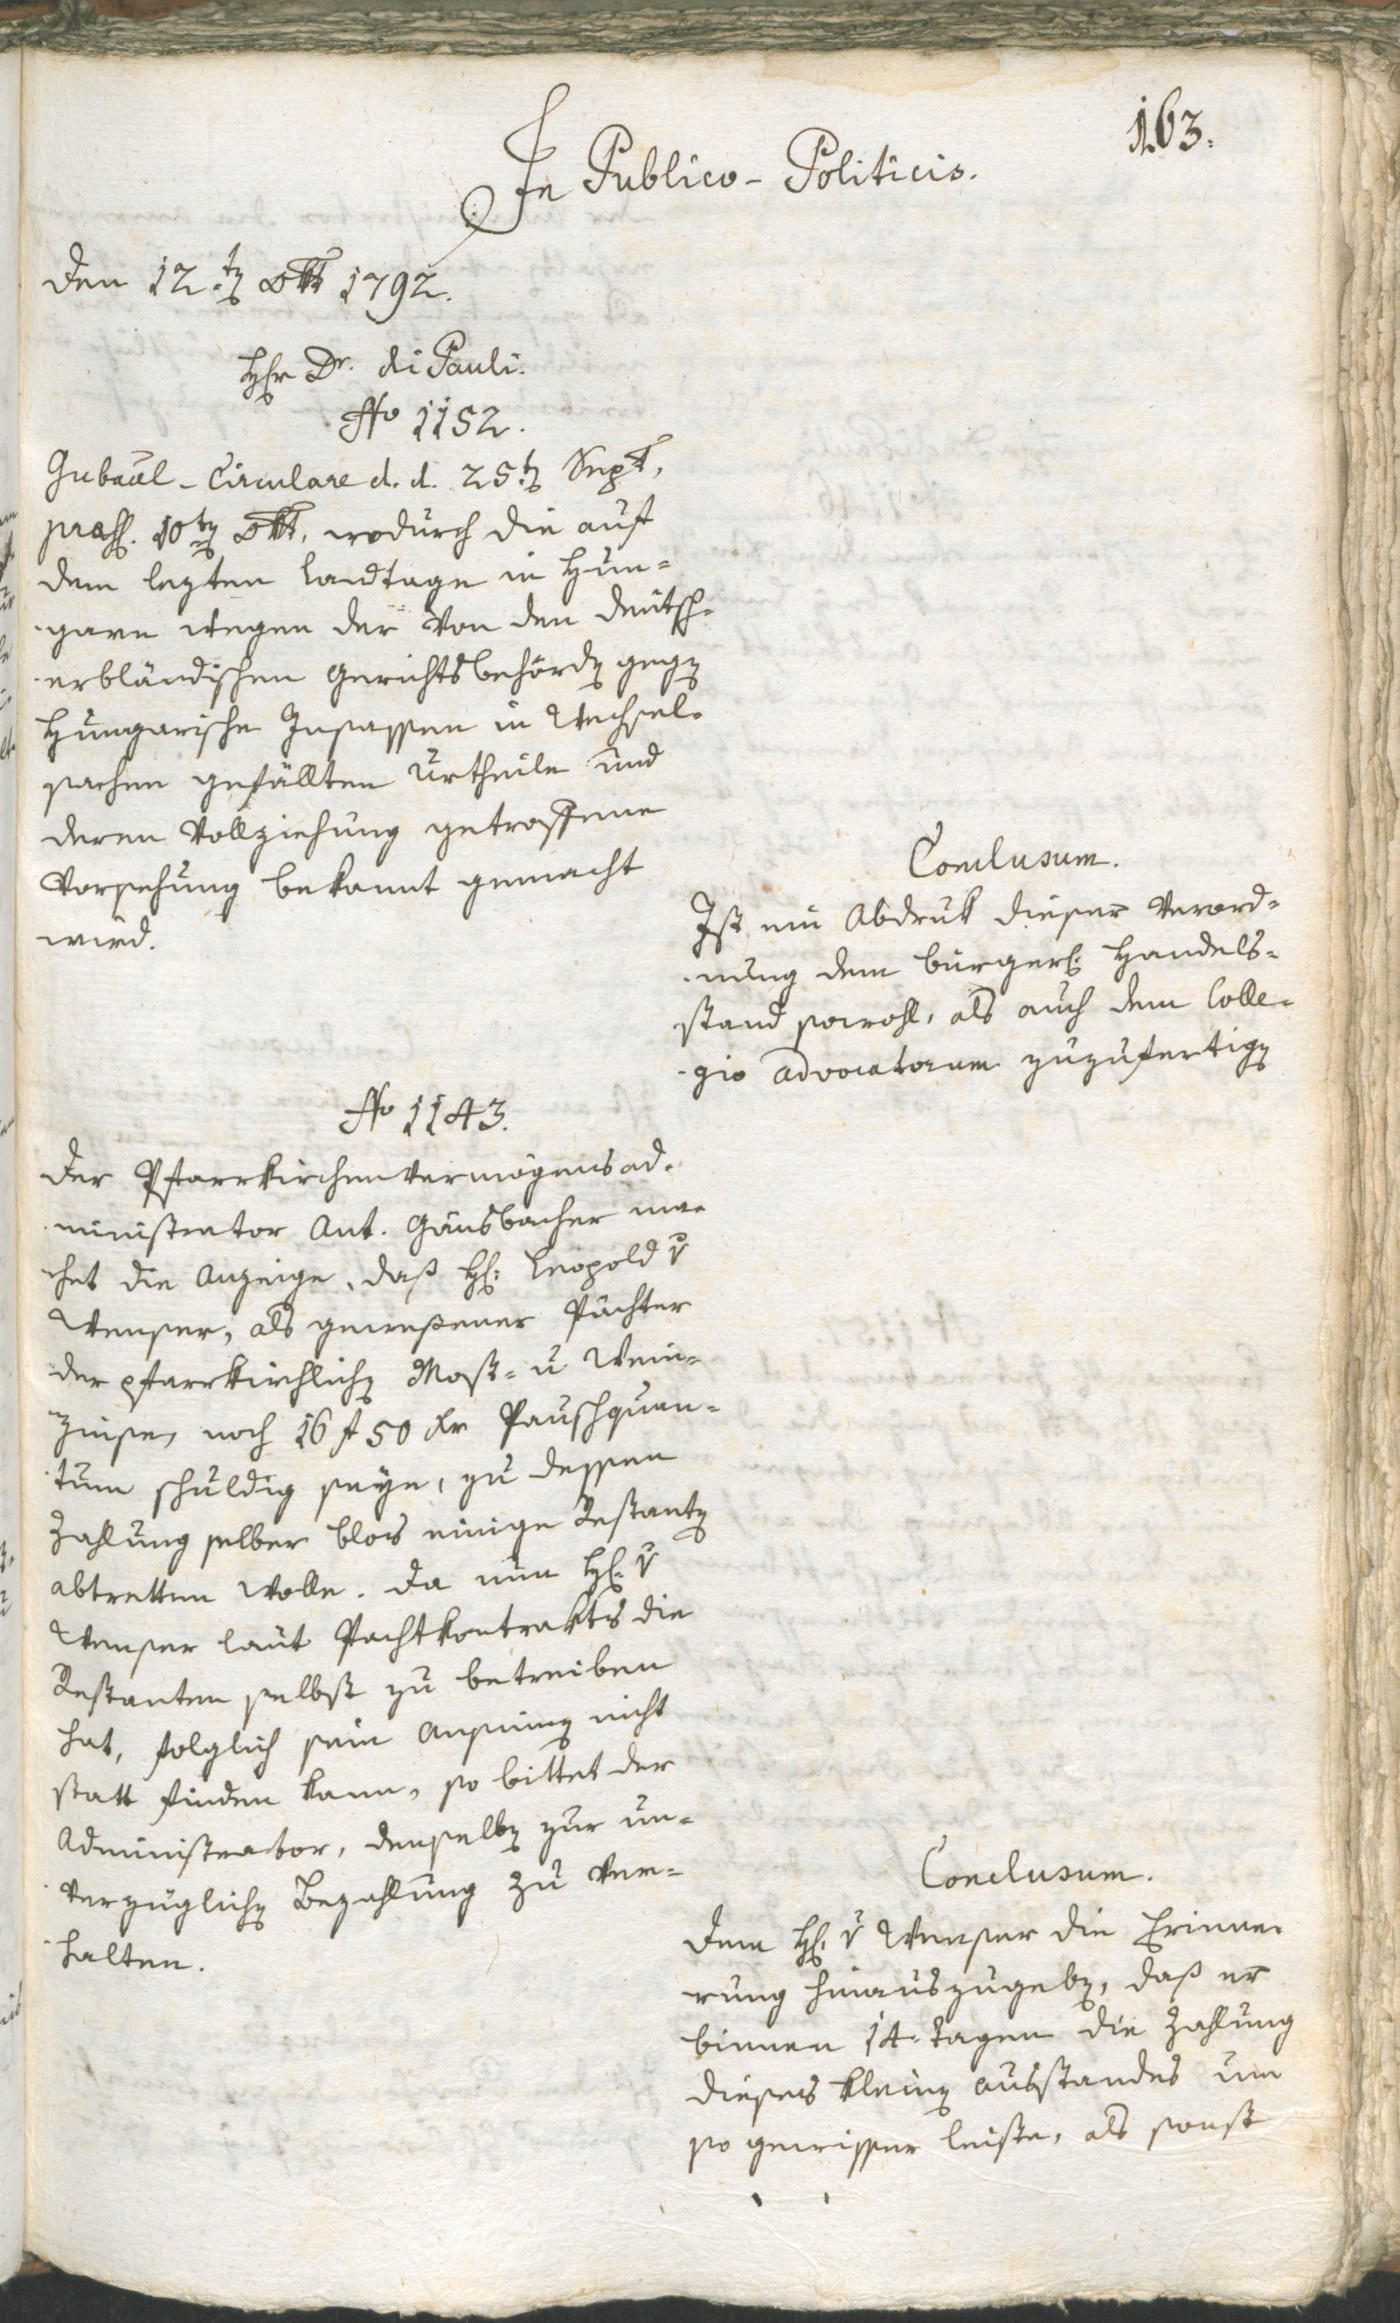 163.
In Publico-Politicis.
Den 12.ten Okt 1792.
Hhr Dr. di Pauli.
No 1152.
Gubāal-Circulare d. d. 25.ten Sept,
præs. 10ten Okt, wodurch die auf
dem lezten Landtage in Hun-
garn wegen der von den deutsch-
erbländischen Gerichtsbehörden gegen
Hungarische Insassen in Wechsel-
sachen gefällten Urtheile und
deren Vollziehung getroffene
Vorsehung bekannt gemacht
wird.
Conclusum.
Ist ein Abdruk dieser Verord-
nung dem bürgerl: Handels-
stand sowohl, als auch dem Colle-
gio advocatorum zuzufertigen
No 1143.
Der Pfarrkirchenvermögensad-
ministrator Ant. Gänsbacher ma-
chet die Anzeige, daß H: Leopold v
Wenser, als gewesener Pächter
der pfarrkirchlichen Most- u Wein-
zinse, noch 16 f 50 kr Pauschquan-
tum schuldig seye, zu dessen
Zahlung selber blos einige Restanten
abtretten wolle. Da nun H: v
Wenser laut Pachtkontrakts die
Restanten selbst zu betreiben
hat, folglich sein Ansinnen nicht
statt finden kann, so bittet der
Administrator, denselben zur un-
verzüglichen Bezahlung zu ver-
halten.
Conclusum.
Dem H: v Wenser die Erinne-
rung hinauszugeben, daß er
binnen 14. Tagen die Zahlung
dieses kleinen Ausstandes um
so gewisser leiste, als sonst